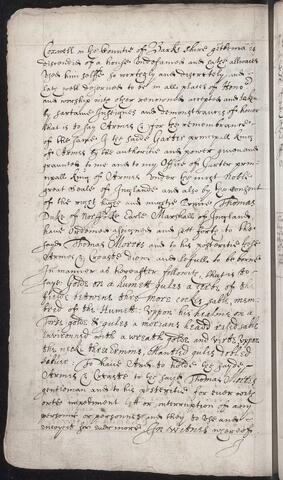 Coxwell in the Countie of Barke shire gentleman is
discended of a house undefamed and hathe allwaies
used him selffe so worthely and discretely and
hathe well deserved to be in all places of Hono
and worship with other renomend accepted and taken
by sartaine Insignes and demonstracions of honor
that is to say Armes & for the remembrance
of the same I the saide Garter principall King
of Armes by the authoritie and power given and
graunted to me and to my Office of Garter prin
cipall King of Armes under the most Noble
great Seale of Inglande and also by the consent
of the right highe and mighte Prince Thomas
Duke of Norffolke Earle Marshall of Ingland
have ordened assigned and sett forth to the
saide Thomas Morres and to his posterite these
Armes & Creaste Dewe and lefull to be borne
in maner as hereafter followith, that is to
saye golde on a humett gules
betwene thre More cocks sable, mem
bred of the Humett. Uppon his healme on a
torse golde & gules a morians headd sable
envirened with a wreath golde and vert, uppon
the neck manteled gules dobled
To have And to holde the sayde
Armes & Creaste to the sayde Thomas Morres
gentleman and to his posteritie for ever with
oute impediment lett or interruption of any
persone or personnes and they to use and
enjoye for evermore. In witnes whereof